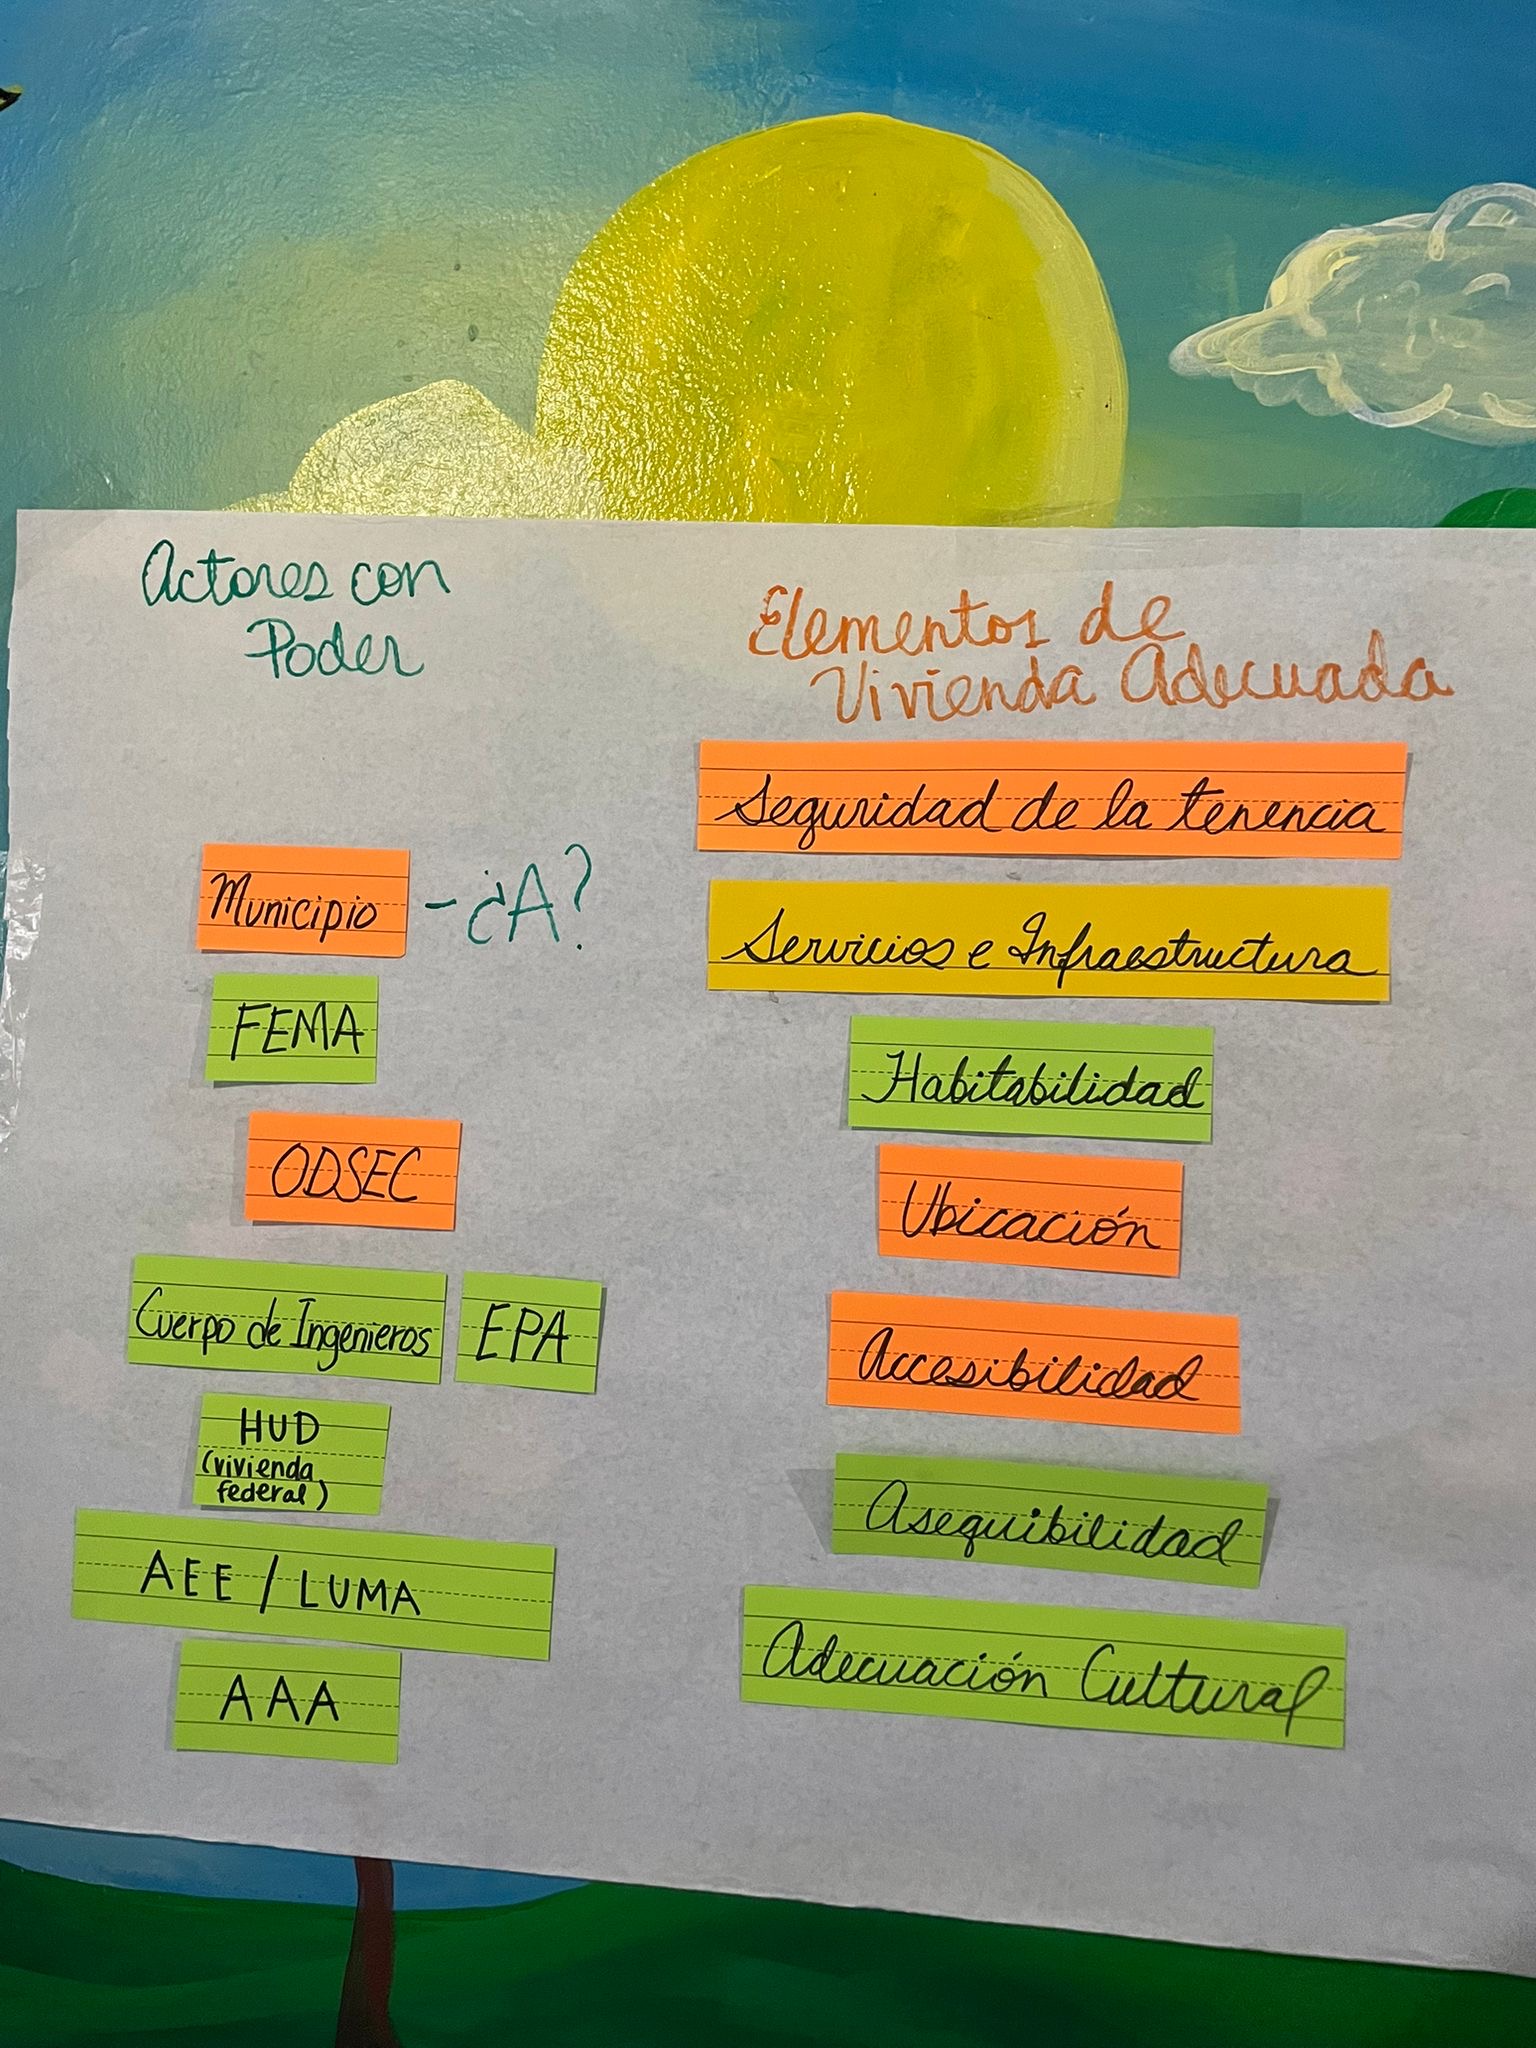 Actores con
Poder
Municipio - ¿A?
FEMA
ODSEC
Cuerpo de Ingenieros
EPA
HUD
(vivienda
federal)
AEE / LUMA
AAA
Elementos de
Vivienda Adecuada
Seguridad de la tenencia
Servicios e Infraestructura
Habitabilidad
Ubicación
Accesibilidad
Asequibilidad
Adecuación Cultural